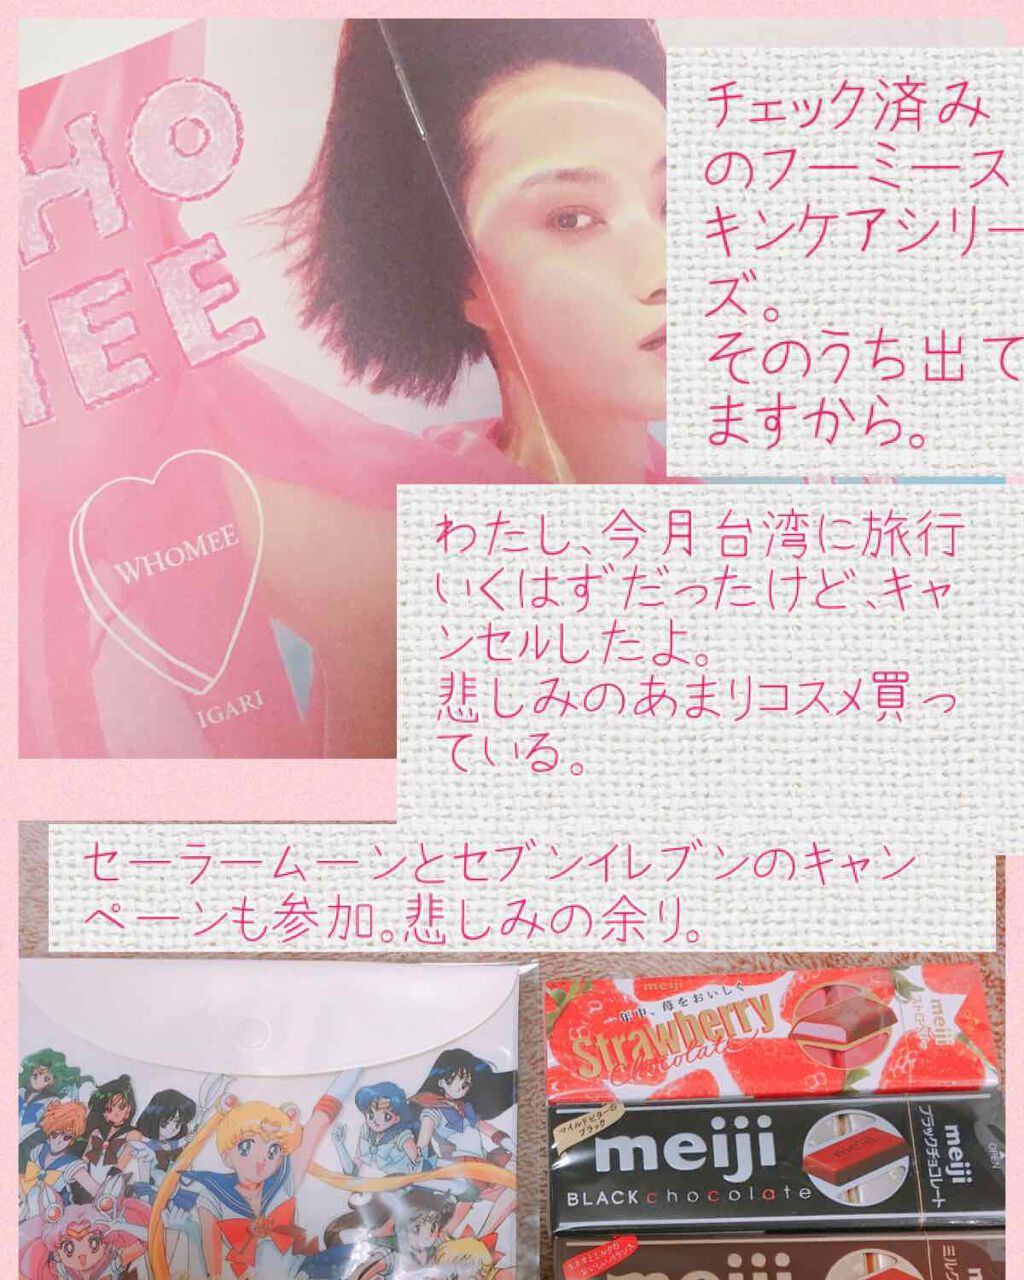 チェック済み
のフーミース
キンケアシリー
ズ。
そのうち出て
ますから。
WHOMEE
IGARI
わたし、今月台湾に旅行
いくはずだったけど、キャ
ンセルしたよ。
悲しみのあまりコスメ買っ
ている。
セーラームーンとセブンイレブンのキャン
ペーンも参加。悲しみの余り。
meiji
一年中、苺をおいしく
Strawberry
Chocolate
meiji
マイルドビターの
ブラック
meiji
BLACK chocolate
meiji
meiji
ブラックチョコレート
OPEN
meiji